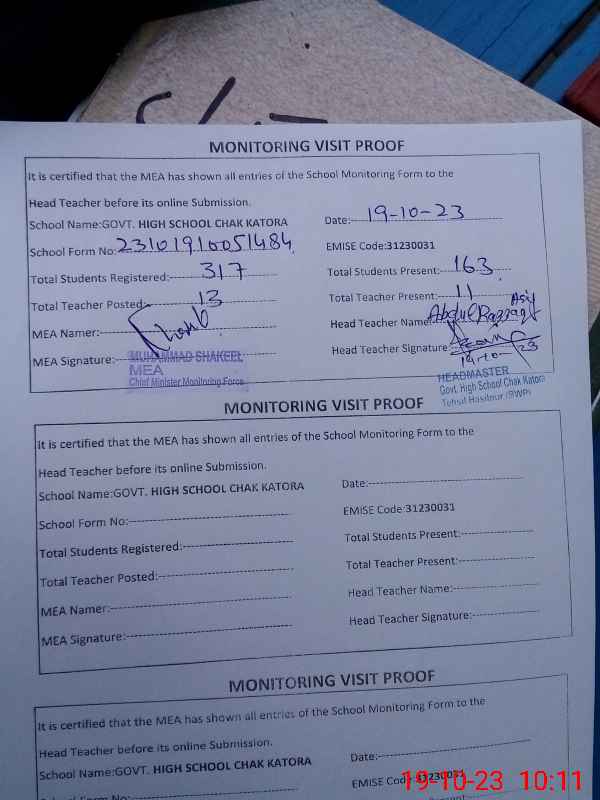 MONITORING VISIT PROOF
It is certified that the MEA has shown all entries of the School Monitoring Form to the
Head Teacher before its online Submission.
School Name:GOVT. HIGH SCHOOL CHAK KATORA Date: 19-10-23
School Form No: 23101910051484 EMISE Code:31230031
Total Students Registered: 317 Total Students Present: 163
Total Teacher Posted: 13 Total Teacher Present: 11
MEA Namer: Head Teacher Name: Abdul Razzaq Asif
MEA Signature: Head Teacher Signature: 19-10-23
MUHAMMAD SHAKEEL
MEA
Chief Minister Monitoring Force
HEADMASTER
Govt. High School Chak Katora
Tehsil Hasilpur (BWP)
MONITORING VISIT PROOF
It is certified that the MEA has shown all entries of the School Monitoring Form to the
Head Teacher before its online Submission.
School Name:GOVT. HIGH SCHOOL CHAK KATORA Date:
School Form No: EMISE Code:31230031
Total Students Registered: Total Students Present:
Total Teacher Posted: Total Teacher Present:
MEA Namer: Head Teacher Name:
MEA Signature: Head Teacher Signature:
MONITORING VISIT PROOF
It is certified that the MEA has shown all entries of the School Monitoring Form to the
Head Teacher before its online Submission.
School Name:GOVT. HIGH SCHOOL CHAK KATORA Date:
EMISE Code:31230031
School Form No:
19-10-23 10:11